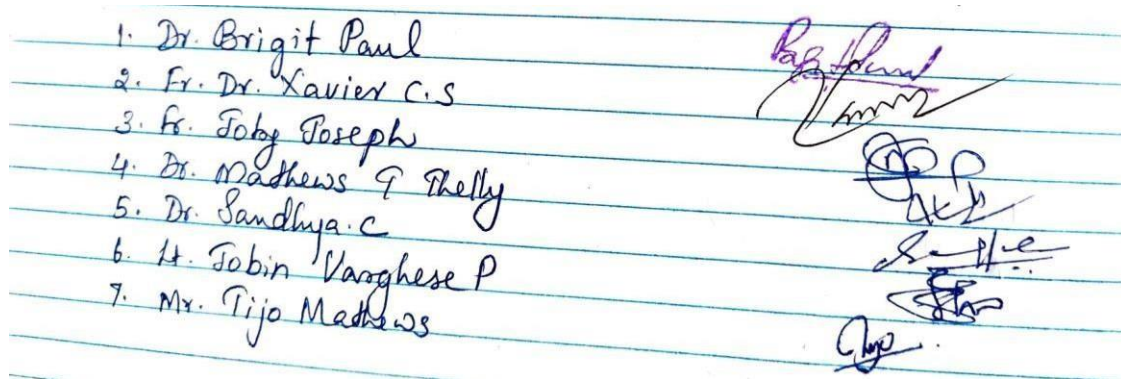 1. Dr. Brigit Paul
2. Fr. Dr. Xavier C.S
3. Fr. Toby Joseph
4. Dr. Mathews T Thelly
5. Dr. Sandhya.C
6. Lt. Tobin Varghese P
7. Mr. Tijo Mathews